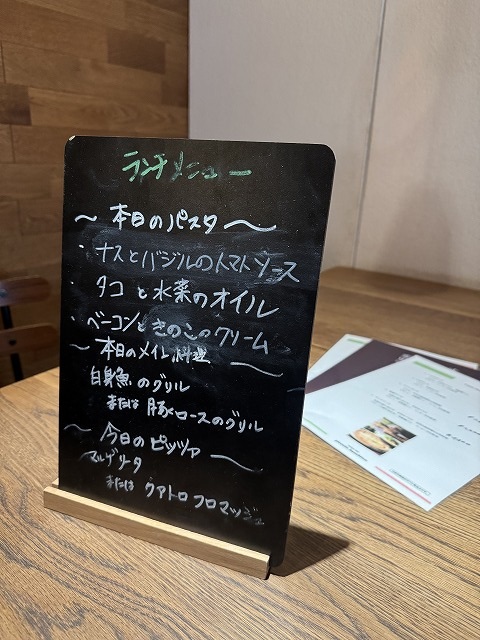 ランチメニュー
～本日のパスタ～
・ナスとバジルのトマトソース
・タコと水菜のオイル
・ベーコンときのこのクリーム
～本日のメイン料理～
白身魚のグリル
または豚ロースのグリル
～今日のピッツァ～
マルゲリータ
またはクアトロフロマッジュ